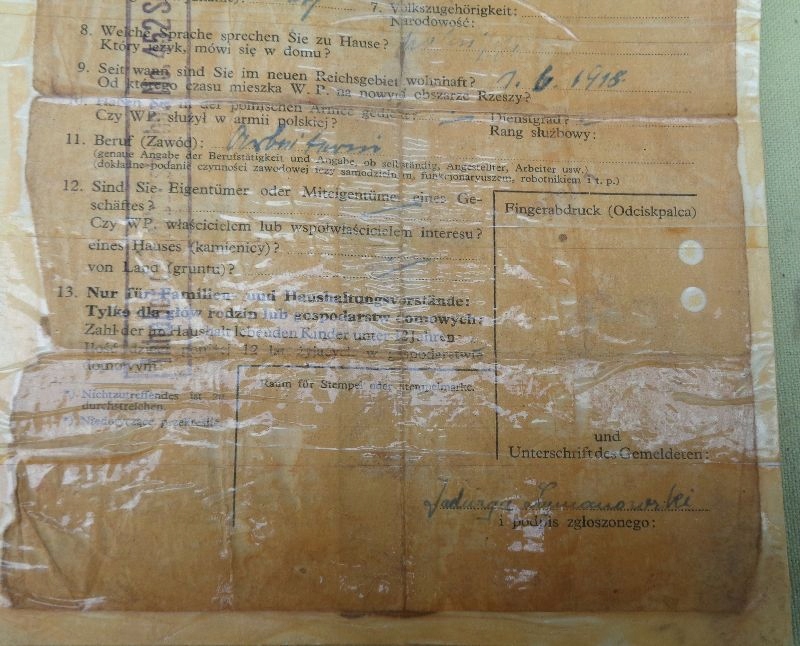 7. Volkszugehörigkeit:
Narodowość:
8. Welche Sprache sprechen Sie zu Hause?
Który język, mówi się w domu?
9. Seit wann sind Sie im neuen Reichsgebiet wohnhaft? 1. 6. 1918
Od którego czasu mieszka W. P. na nowym obszarze Rzeszy?
10. Haben Sie in der polnischen Armee gedient? Dienstgrad?
Czy WP. służył w armii polskiej? Rang służbowy:
11. Beruf (Zawód): Arbeiterin
(genaue Angabe der Berufstätigkeit und Angabe, ob selbständig, Angestellter, Arbeiter usw.)
(dokładne podanie czynności zawodowej czy samodzielnym, funkcjonaryuszem, robotnikiem i t. p.)
12. Sind Sie Eigentümer oder Miteigentümer eines Ge-
schäftes?
Czy WP. właścicielem lub współwłaścicielem interesu?
eines Hauses (kamienicy)?
von Land (gruntu)?
Fingerabdruck (Odciskpalca)
13. Nur für Familien- und Haushaltungsvorstände:
Tylko dla głów rodzin lub gospodarstw domowych:
Zahl der im Haushalt lebenden Kinder unter 12 Jahren
12 lat żyjących w gospodarstwie
domowym
Raum für Stempel oder Stempelmarke.
*) Nichtzutreffendes ist zu
durchstreichen.
*) Niedotyczące przekreślić.
und
Unterschrift des Gemeldeten:
Jadwiga Szymanowski
i podpis zgłoszonego:
452S